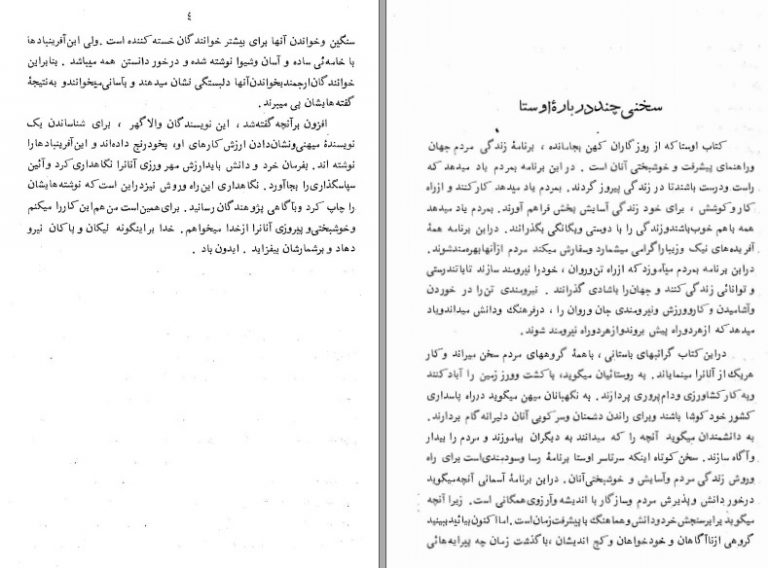 ٤
سنگین وخواندن آنها برای بیشتر خوانندگان خسته کننده است . ولی این آفرینبادها
با خامه‌ئی ساده و آسان وشیوا نوشته شده و درخور دانستن همه میباشد . بنابراین
خوانندگان ارجمند بخواندن آنها دلبستگی نشان میدهند و بآسانی میخوانند و به نتیجهٔ
گفته‌هایشان پی میبرند.
افزون برآنچه گفته شد ، این نویسندگان والاگهر ، برای شناساندن یک
نویسندهٔ میهنی و نشاندادن ارزش کارهای او، بخودرنج داده‌اند و این آفرینبادها را
نوشته اند . بفرمان خرد و دانش باید ارزش مهر ورزی آنانرا نگاهداری کرد و آئین
سپاسگذاری را بجا آورد . نگاهداری این راه وروش نیز دراین است که نوشته‌هایشان
را چاپ کرد و بآگاهی پژوهندگان رسانید . برای همین است من هم این کار را میکنم
و خوشبختی و پیروزی آنانرا ازخدا میخواهم . خدا بر اینگونه نیکان و پاکان نیرو
دهاد و برشمارشان بیفزاید . ایدون باد .
سخنی چند دربارهٔ اوستا
کتاب اوستا که از روزگاران کهن بجا مانده ، برنامهٔ زندگی مردم جهان
وراهنمای پیشرفت و خوشبختی آنان است . در این برنامه بمردم یاد میدهد که
راست ودرست باشند تا در زندگی پیروز گردند. بمردم یاد میدهد کارکنند و ازراه
کار و کوشش ، برای خود زندگی آسایش بخش فراهم آورند. بمردم یاد میدهد
همه باهم خوب باشند و زندگی را با دوستی ویگانگی بگذرانند. دراین برنامه همهٔ
آفریده‌های نیک وزیبا را گرامی میشمارد وسفارش میکند مردم ازآنها بهره‌مند شوند.
دراین برنامه بمردم میآموزد که ازراه تن وروان ، خودرا نیرومند سازند تا با تندرستی
و توانائی زندگی کنند و جهان را باشادی گذرانند . نیرومندی تن را در خوردن
وآشامیدن و کار و ورزش ونیرومندی جان وروان را ، درفرهنگ ودانش میداند و یاد
میدهد که ازهر دوراه پیش بروند و ازهر دوراه نیرومند شوند.
دراین کتاب گرانبهای باستانی ، با همهٔ گروههای مردم سخن میراند وکار
هریک از آنانرا مینمایاند. به روستائیان میگوید، با کشت وورز زمین را آباد کنند
وبه کار کشاورزی ودام پروری پردازند. به نگهبانان میهن میگوید درراه پاسداری
کشور خود کوشا باشند وبرای راندن دشمنان وسرکوبی آنان دلیرانه گام بردارند.
به دانشمندان میگوید آنچه را که میدانند به دیگران بیاموزند و مردم را بیدار
وآگاه سازند. سخن کوتاه اینکه سرتاسر اوستا برنامهٔ رسا وسودمندی است برای راه
وروش زندگی مردم وآسایش و خوشبختی آنان. دراین برنامهٔ آسمانی آنچه میگوید
درخور دانش و پذیرش مردم وسازگار با اندیشه وآرزوی همگانی است. زیرا آنچه
میگوید برابر سنجش خرد و دانش و هماهنگ با پیشرفت زمان است. اما اکنون بیائید ببینید
گروهی ازناآگاهان و خودخواهان و کج اندیشان ، با گذشت زمان چه پیرایه‌هائی